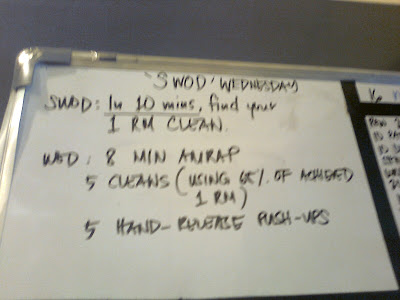 'SWOD' WEDNESDAY
SWOD: In 10 mins, find your
1 RM CLEAN.
WOD: 8 MIN AMRAP
5 CLEANS (USING 65% OF ACHIEVED
1 RM)
5 HAND-RELEASE PUSH-UPS